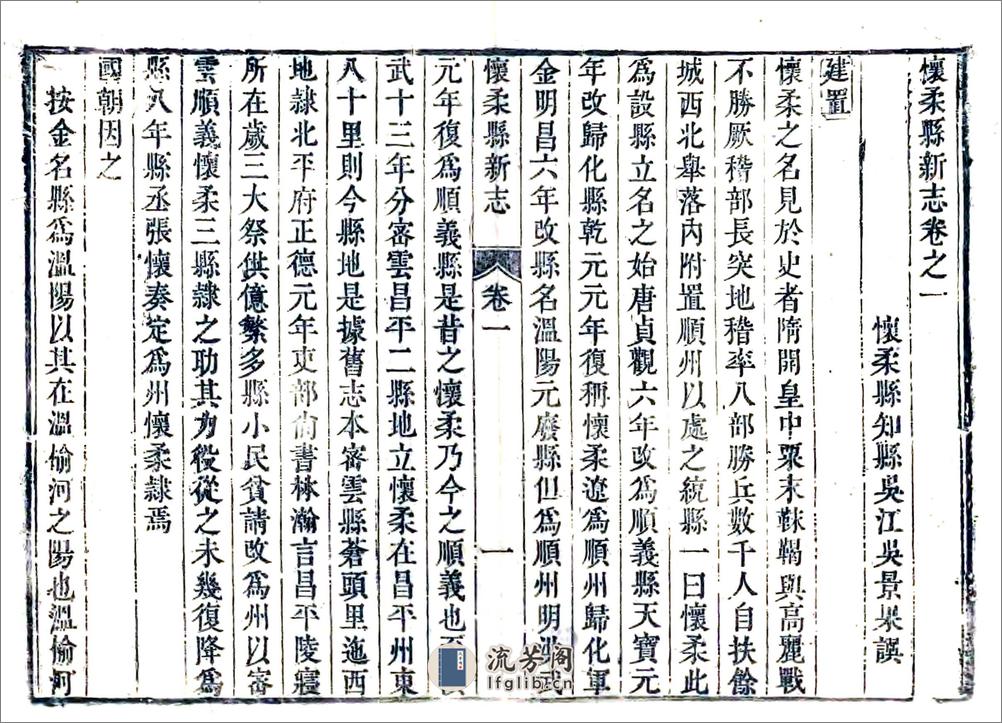 懷柔縣新志卷之一
懷柔縣知縣吳江吳景果譔
建置
懷柔之名見於史者隋開皇中粟末靺鞨與高麗戰
不勝厥稽部長突地稽率八部勝兵數千人自扶餘
城西北舉落內附置順州以處之統縣一曰懷柔此
為設縣立名之始唐貞觀六年改為順義縣天寶元
年改歸化縣乾元元年復稱懷柔遼為順州歸化軍
金明昌六年改縣名溫陽元廢縣但為順州明洪武
懷柔縣新志 卷一 一
元年復為順義縣是昔之懷柔乃今之順義也至
武十三年分密雲昌平二縣地立懷柔在昌平州東
八十里則今縣地是據舊志本密雲縣蒼頭里迤西
地隷北平府正德元年吏部尙書林瀚言昌平陵寢
所在歲三大祭供億繁多縣小民貧請改為州以密
雲順義懷柔三縣隷之助其力役從之未幾復降為
縣八年縣丞張懷奏定為州懷柔隷焉
國朝因之
按金名縣為溫陽以其在溫愉河之陽也溫愉河
流芳閣
lfglib.cn